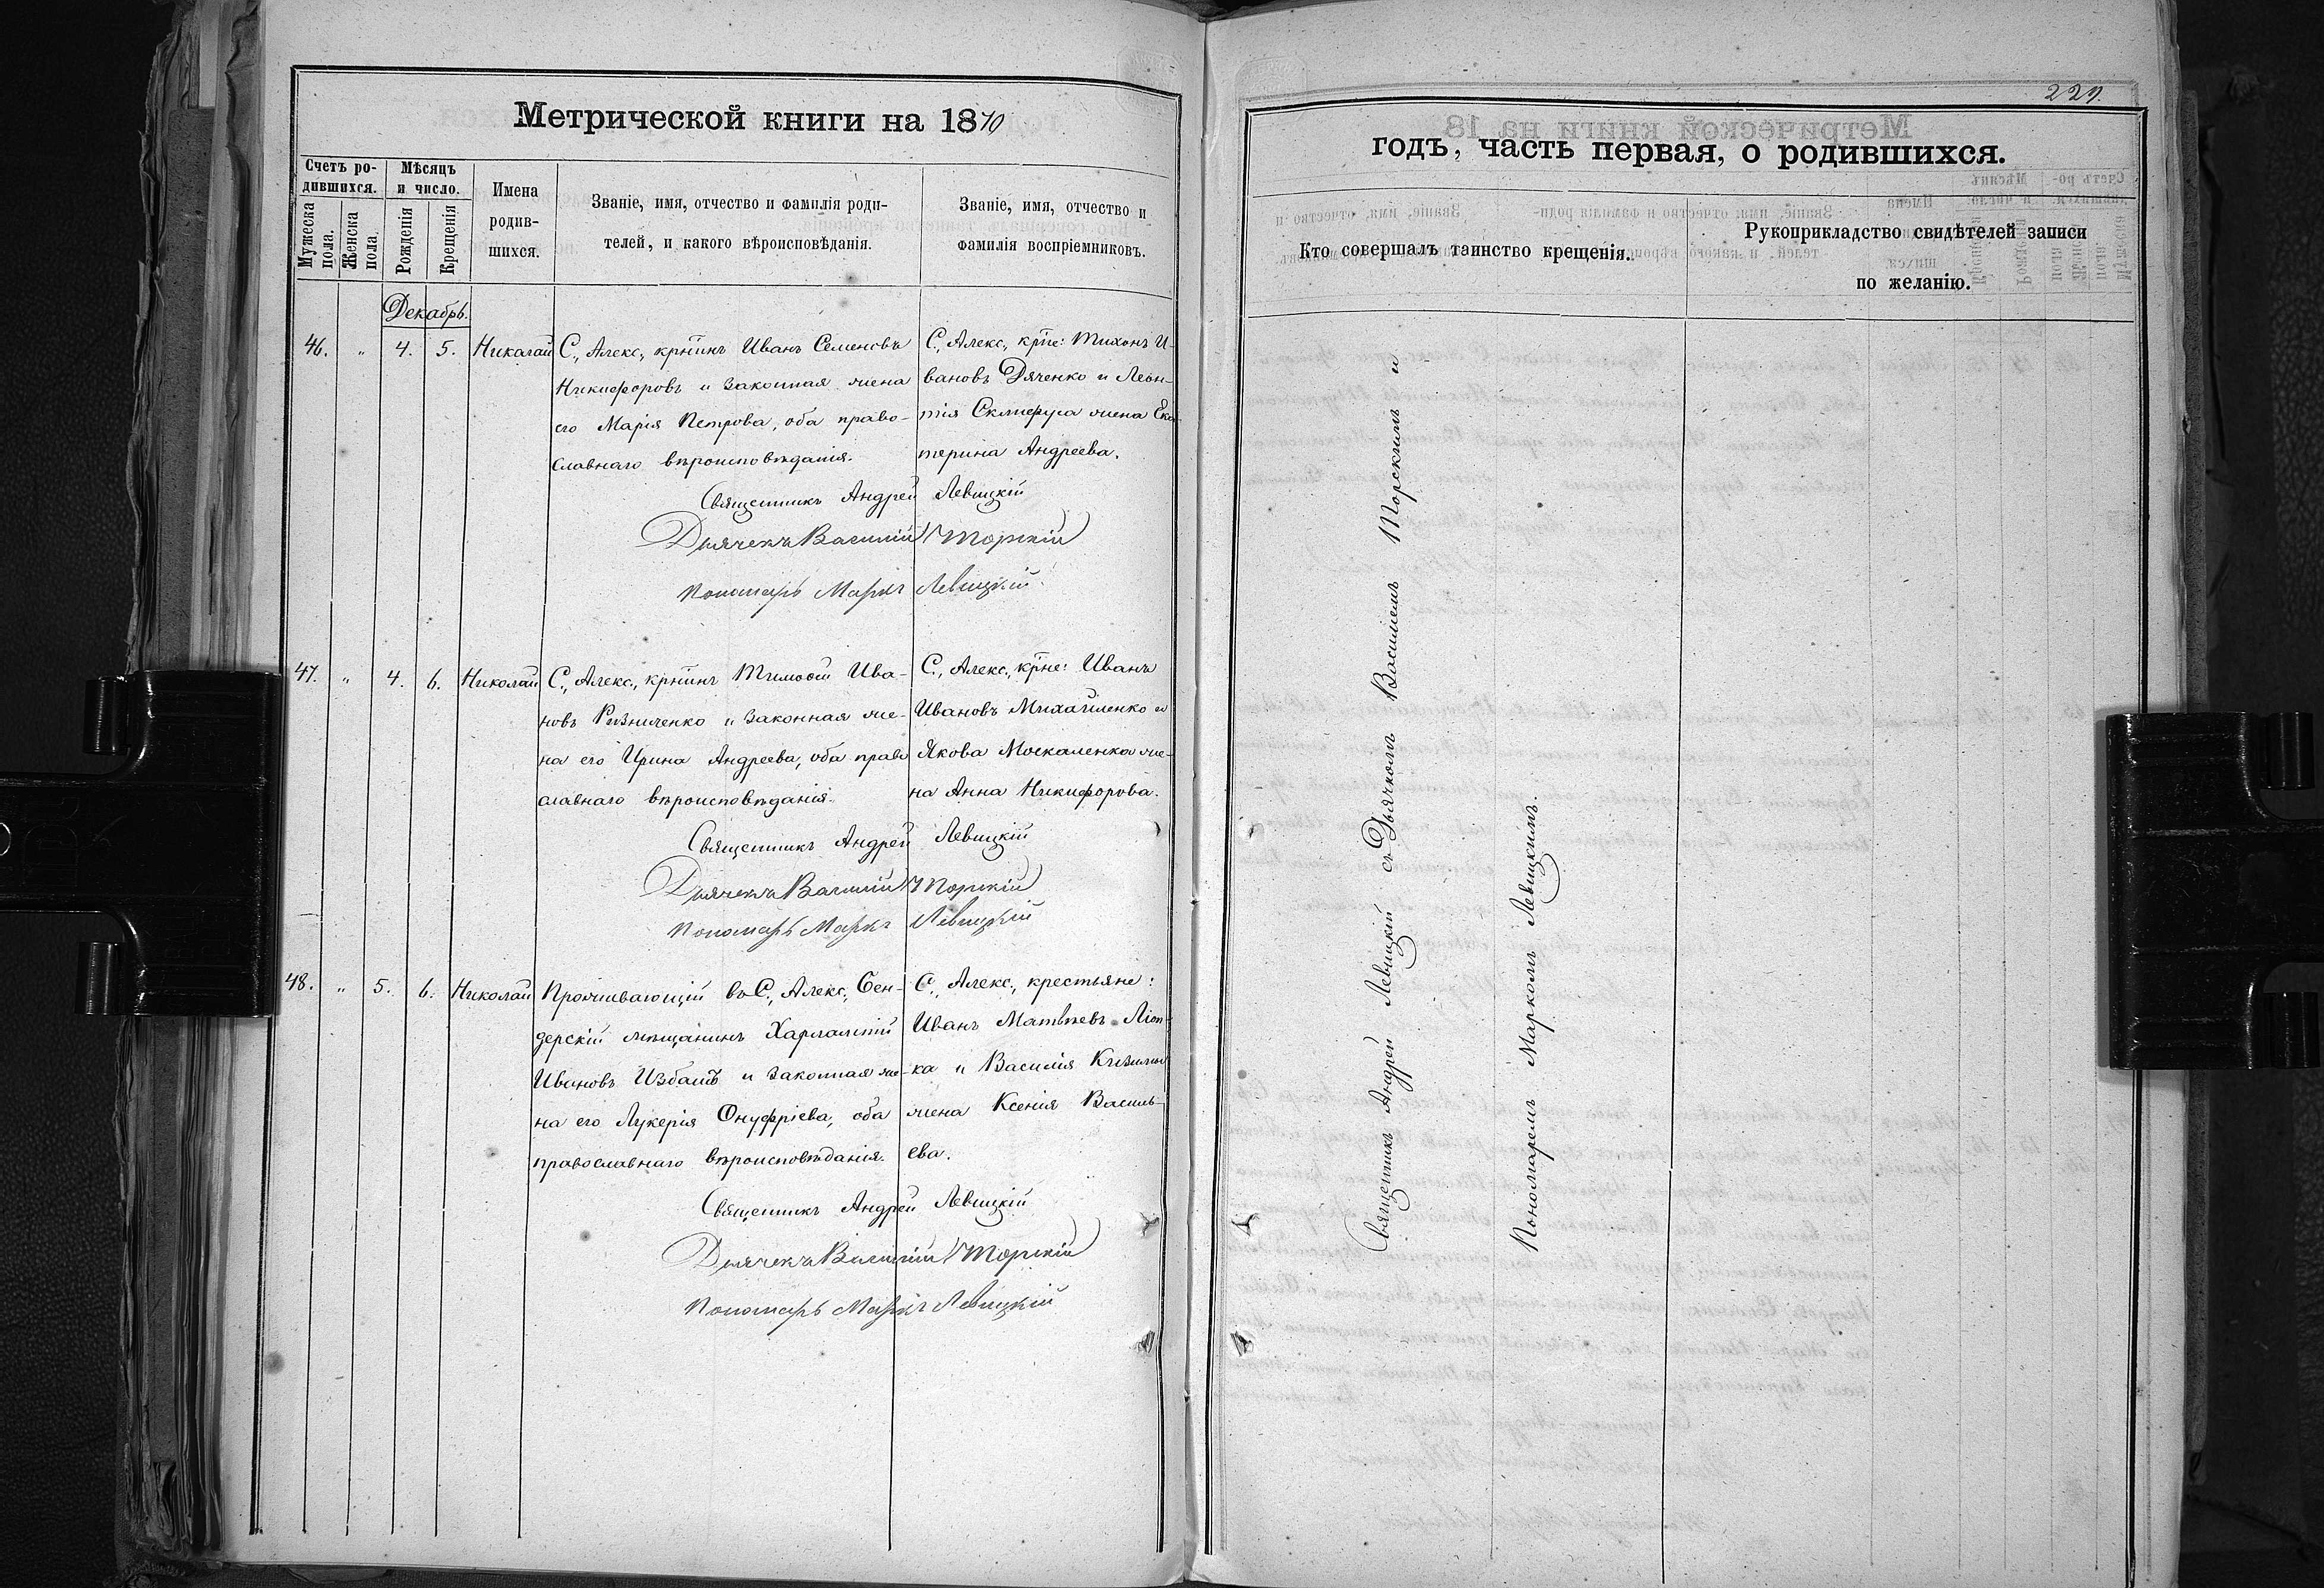 Метрической книги на 1870
Счетъ ро-
дившихся.
Мужеска пола.
Женска пола.
Мѣсяцъ
и число.
Рожденія
Крещенія
Имена
родив-
шихся.
Званіе, имя, отчество и фамилія роди-
телей, и какого вѣроисповѣданія.
Званіе, имя, отчество и
фамилія воспріемниковъ.
Декабрь.
46. „ 4. 5. Николай
С., Алекс., крнинъ Иванъ Семеновъ
Никифоровъ и законная жена
его Марія Петрова, оба право-
славнаго вѣроисповѣданія.
С., Алекс., крне: Тихонъ И-
вановъ Дяченко и Леон-
тія жена Ека-
терина Андреева.
Священникъ Андрей Левицкій
Дьячекъ Василій Торскій
Пономарь Маркъ Левицкій
47. „ 4. 6. Николай
С., Алекс., крнинъ Тимоѳей Ива-
новъ Рѣзниченко и законная же-
на его Ирина Андреева, оба право
славнаго вѣроисповѣданія.
С., Алекс., крне: Иванъ
Ивановъ Михайленко и
Якова Москаленка же-
на Анна Никифорова.
Священникъ Андрей Левицкій
Дьячекъ Василій Торскій
Пономарь Маркъ Левицкій
48. „ 5. 6. Николай
Проживающій въ С., Алекс., Бен-
дерскій мѣщанинъ Харлампій
Ивановъ и законная же-
на его Лукерія Онуфріева, оба
православнаго вѣроисповѣданія.
С., Алекс., крестьяне:
Иванъ Матвѣевъ
ка и Василія
жена Ксенія Василь-
ева.
Священникъ Андрей Левицкій
Дьячекъ Василій Торскій
Пономарь Маркъ Левицкій
229.
годъ, часть первая, о родившихся.
Кто совершалъ таинство крещенія.
Рукоприкладство свидѣтелей записи
по желанію.
Священникъ Андрей Левицкій съ Дьячкомъ Василіемъ Торскимъ и
Пономаремъ Маркомъ Левицкимъ.